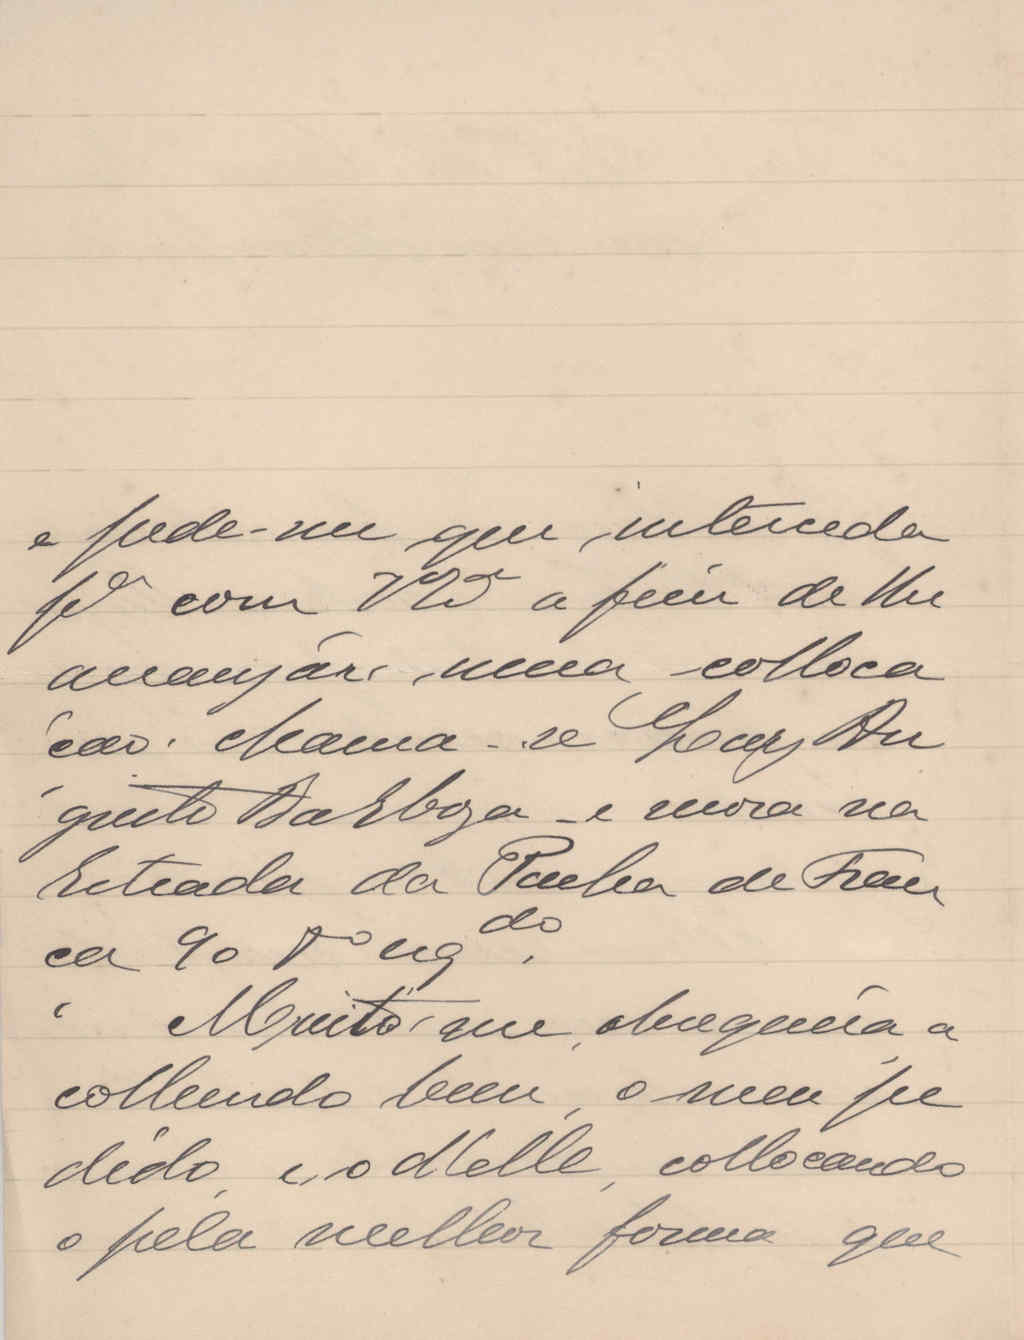 e pede-me que interceda
pª com VExª a fim de lhe
arranjár, uma colloca
ção. Chama-se Au
gusto Barboza - e mora na
Estrada da Penha de Fran
ça 90 do.
Muito, me, obsequeia a
colhendo bem, o meu pe
dido, e, o d'Elle, collocando
o pela melhor forma que